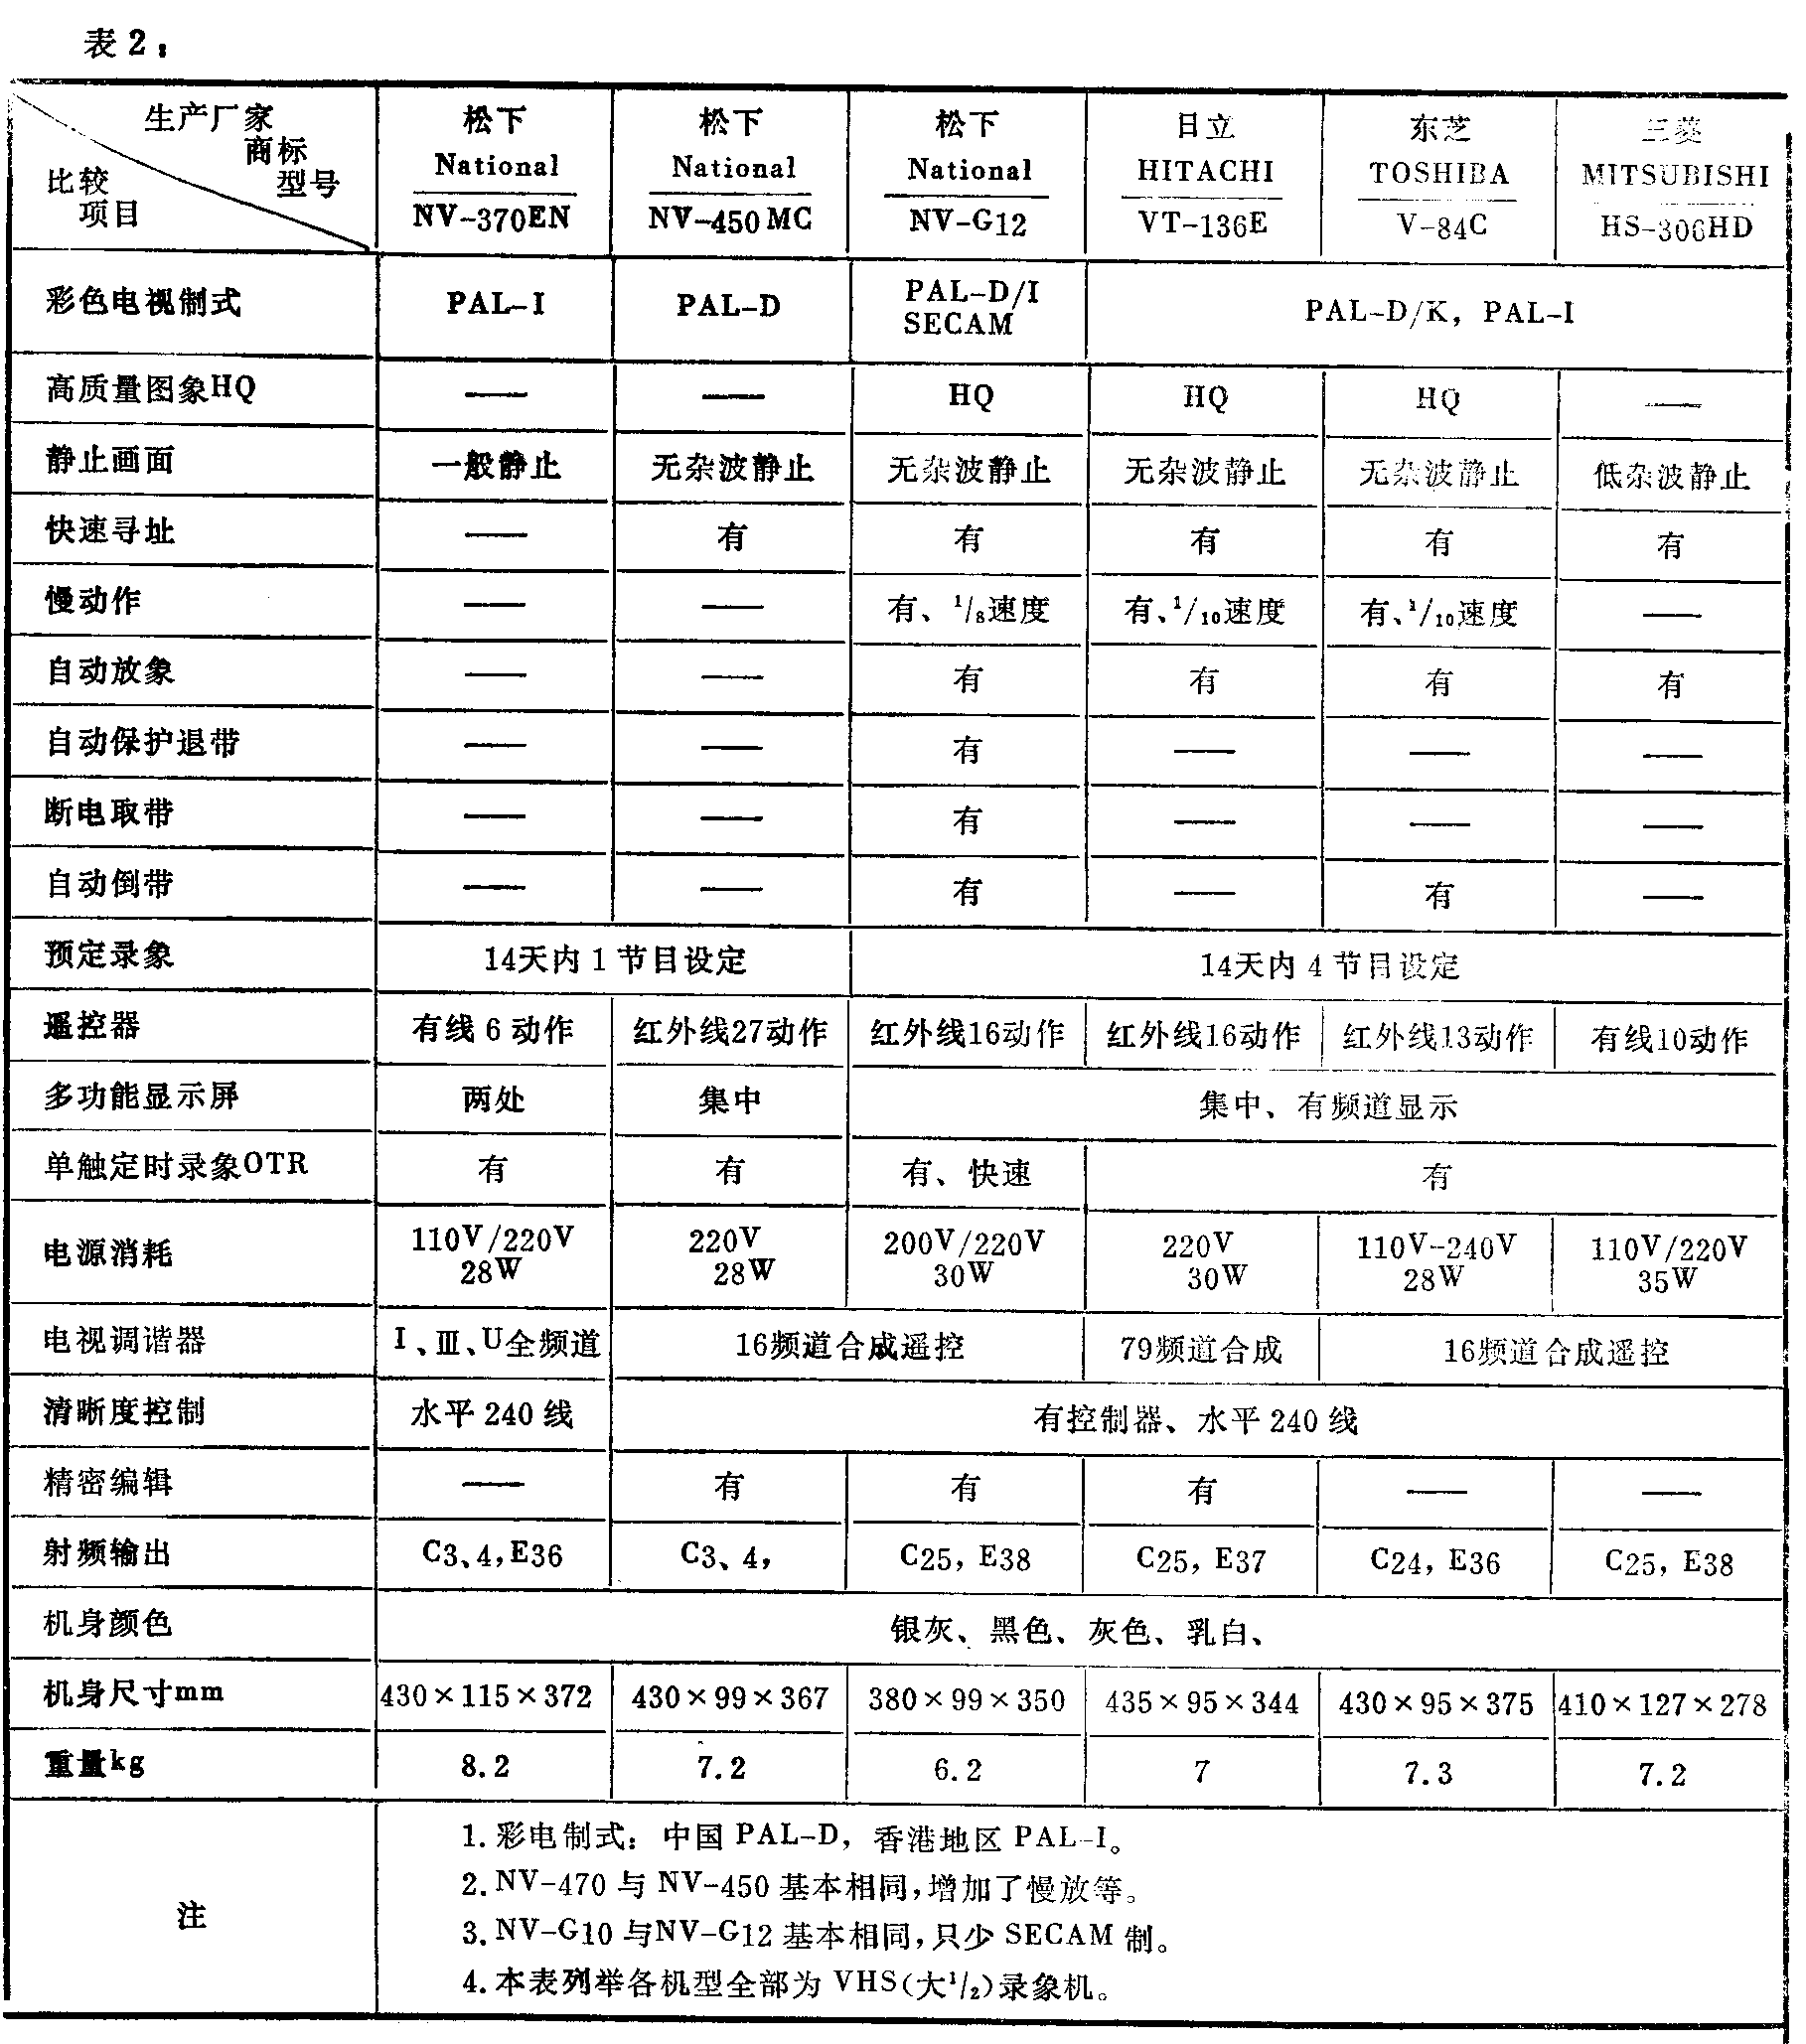 表2：
生产厂家
商标
型号
比较
项目
松下 松下 松下 日立 东芝 三菱
National National National HITACHI TOSHIBA MITSUBISHI
NV-370EN NV-450MC NV-G12 VT-136E V-84C HS-306HD
彩色电视制式 PAL-I PAL-D PAL-D/I SECAM PAL-D/K, PAL-I
高质量图象HQ —— —— HQ HQ HQ ——
静止画面 一般静止 无杂波静止 无杂波静止 无杂波静止 无杂波静止 低杂波静止
快速寻址 —— 有 有 有 有 有
慢动作 —— —— 有、1/8速度 有、1/10速度 有、1/10速度 ——
自动放象 —— —— 有 有 有 有
自动保护退带 —— —— 有 —— —— ——
断电取带 —— —— 有 —— —— ——
自动倒带 —— —— 有 —— 有 ——
预定录象 14天内1节目设定 14天内4节目设定
遥控器 有线6动作 红外线27动作 红外线16动作 红外线16动作 红外线13动作 有线10动作
多功能显示屏 两处 集中 集中、有频道显示
单触定时录象OTR 有 有 有、快速 有
电源消耗 110V/220V 28W 220V 28W 200V/220V 30W 220V 30W 110V-240V 28W 110V/220V 35W
电视调谐器 I、III、U全频道 16频道合成遥控 79频道合成 16频道合成遥控
清晰度控制 水平240线 有控制器、水平240线
精密编辑 —— 有 有 有 —— ——
射频输出 C3、4,E36 C3、4, C25, E38 C25, E37 C24, E36 C25, E38
机身颜色 银灰、黑色、灰色、乳白、
机身尺寸mm 430×115×372 430×99×367 380×99×350 435×95×344 430×95×375 410×127×278
重量kg 8.2 7.2 6.2 7 7.3 7.2
注
1. 彩电制式：中国 PAL-D，香港地区 PAL-I。
2. NV-470 与 NV-450 基本相同,增加了慢放等。
3. NV-G10 与NV-G12 基本相同,只少 SECAM 制。
4. 本表列举各机型全部为 VHS(大1/2)录象机。